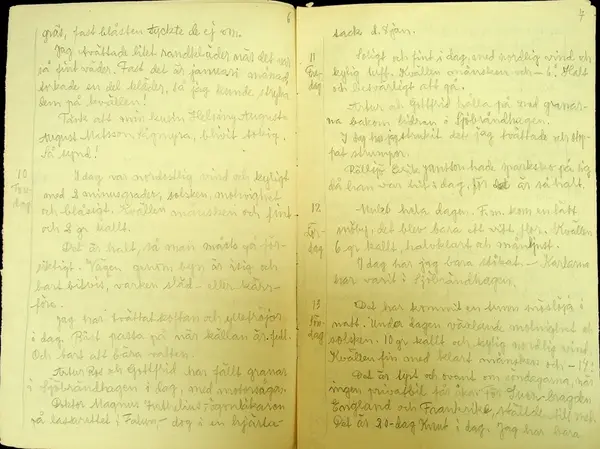 6
gräs, fast blåsten tyckte de ej om.
Jag tvättade litet sandkläder när det var
så fint väder. Fast det är januari månad
torkade en del kläder, så jag kunde stryka
dem på kvällen!
Tänk att min kusin Helsing Augusta
August Matsson Lignyra, blivit tokig.
Så synd!
10
Tors-
dag
I dag var nordostlig vind och kyligt
med 2 minusgrader, solsken, molnighet
och blåsigt. Kvällen månsken och fint
och 2 gr kallt.
Det är halt, så man måste gå för-
siktigt. Vägen genom byn är isig och
bart bitvis, varken släd- eller kärr-
före.
Jag har tvättat koftan och ylletröjor
i dag. Bäst passa på när källan är full.
Och kort att bära vatten.
Artur och Gottfrid har fällt granar
i Sjöbrändhagen i dag, med motorsåga.
Doktor Magnus ögonläkaren
på lasarettet i Falun - dog i en hjärta-
7
tack d. 8 jan.
11
Fre-
dag
Soligt och fint i dag, med nordlig vind och
kylig luft. Kvällen månsken och -6. Halt
och besvärligt att gå.
Artur och Gottfrid hålla på med granar-
na bakom ladan i Sjöbrändhagen.
I dag ha jag strukit det jag tvättade och stop-
pat strumpor.
Erik Jansson hade sparksko på sig
då han var hit i dag, för det är så halt.
12
Lör-
dag
Mulet hela dagen. F.m. kom en lätt
snöby, det blev bara ett vitt flor. Kvällen
6 gr. kallt, halvklart och månljust.
I dag har jag bara stökat. - Karlarna
har varit i Sjöbrändhagen.
13
Sön-
dag
Det har kommit en tunn snöslöja i
natt. Under dagen växlande molnighet o.
solsken. 10 gr kallt och kylig nordlig vind.
Kvällen fin med klart månsken och -14.
Det är tyst och ovant om söndagarna, när
ingen privatbil får åka för Suez-bragden
England och Frankrike, ställde till med.
Det är 20-dag Knut i dag. Jag har bara